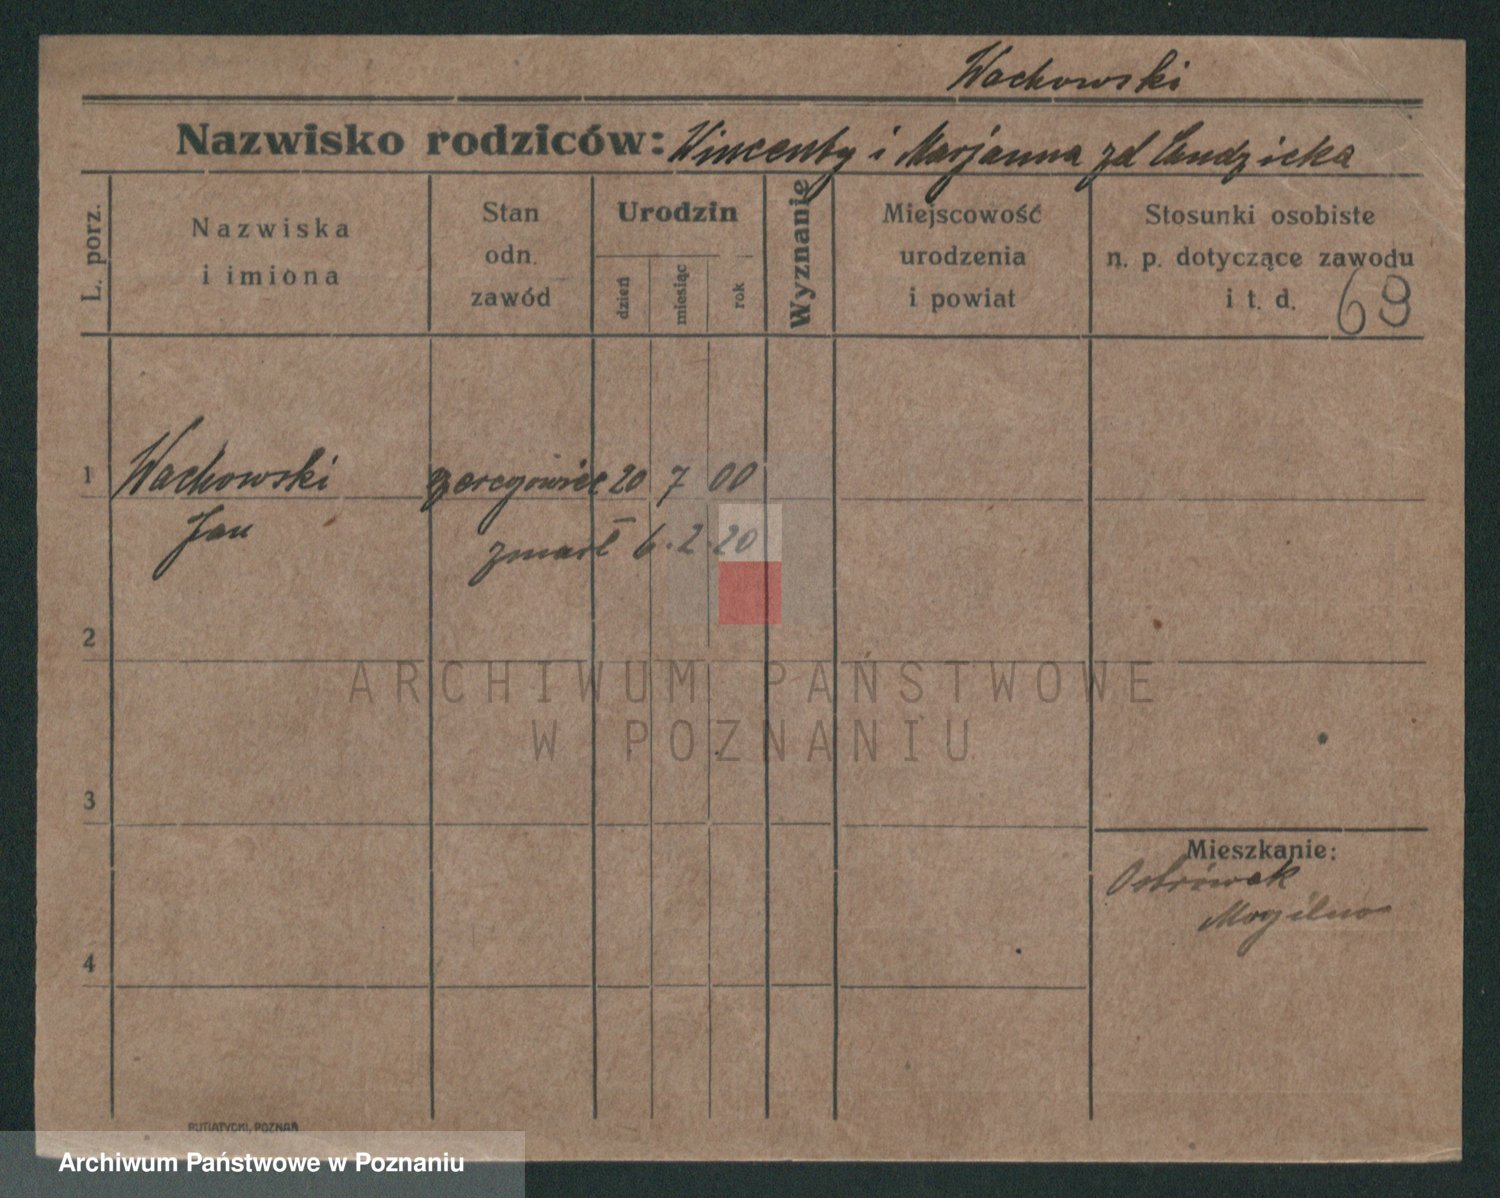 Wachowski
Nazwisko rodziców: Wincenty i Marjanna zd Ludzicka
L. porz.
Nazwiska
i imiona
Stan
odn.
zawód
Urodzin
dzień
miesiąc
rok
Wyznanie
Miejscowość
urodzenia
i powiat
Stosunki osobiste
n. p. dotyczące zawodu
i t. d.
69
1
Wachowski szeregowiec 20 7 00
Jan
zmarł 6.2.20
2
ARCHIWUM PAŃSTWOWE
W POZNANIU
3
Mieszkanie:
Ostrówek
Mogilno
4
PUTIATYCKI, POZNAŃ
Archiwum Państwowe w Poznaniu